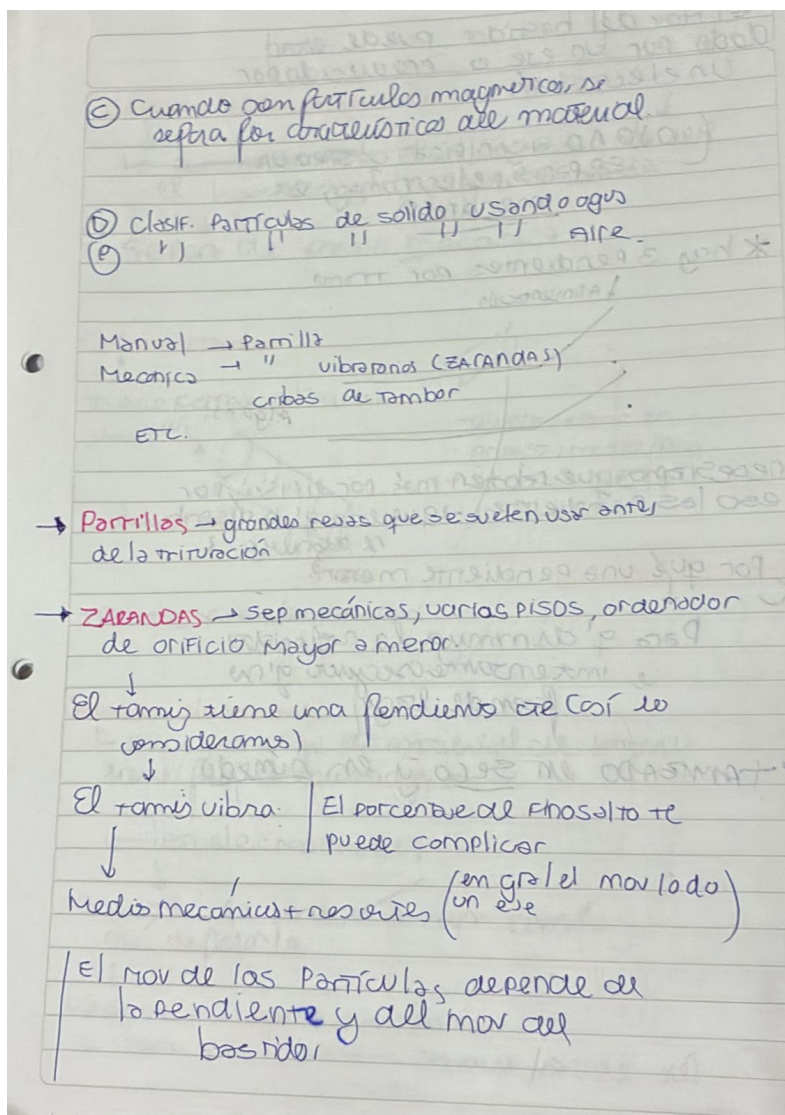 Ⓒ Cuando son partículas magneticas, se
separa por características del material.
Ⓓ Clasif. Partículas de solido usando agua
Ⓔ " " " " " Aire.
Manual → Parrilla
Mecanica → " vibratorias (ZARANDAS)
cribas de Tambor
ETC.
→ Parrillas → grandes rejas que se suelen usar antes
de la trituración
→ ZARANDAS → sep mecánicos, varios pisos, ordenador
de orificio mayor a menor.
↓
El tamiz tiene una pendiente cte (así lo
consideramos)
↓
El tamiz vibra. | El porcentaje de finos alto te
puede complicar
↓
Medios mecánicos + resortes (en gral el mov lo da
un eje)
El mov de las Partículas depende de
la pendiente y del mov del
bastidor